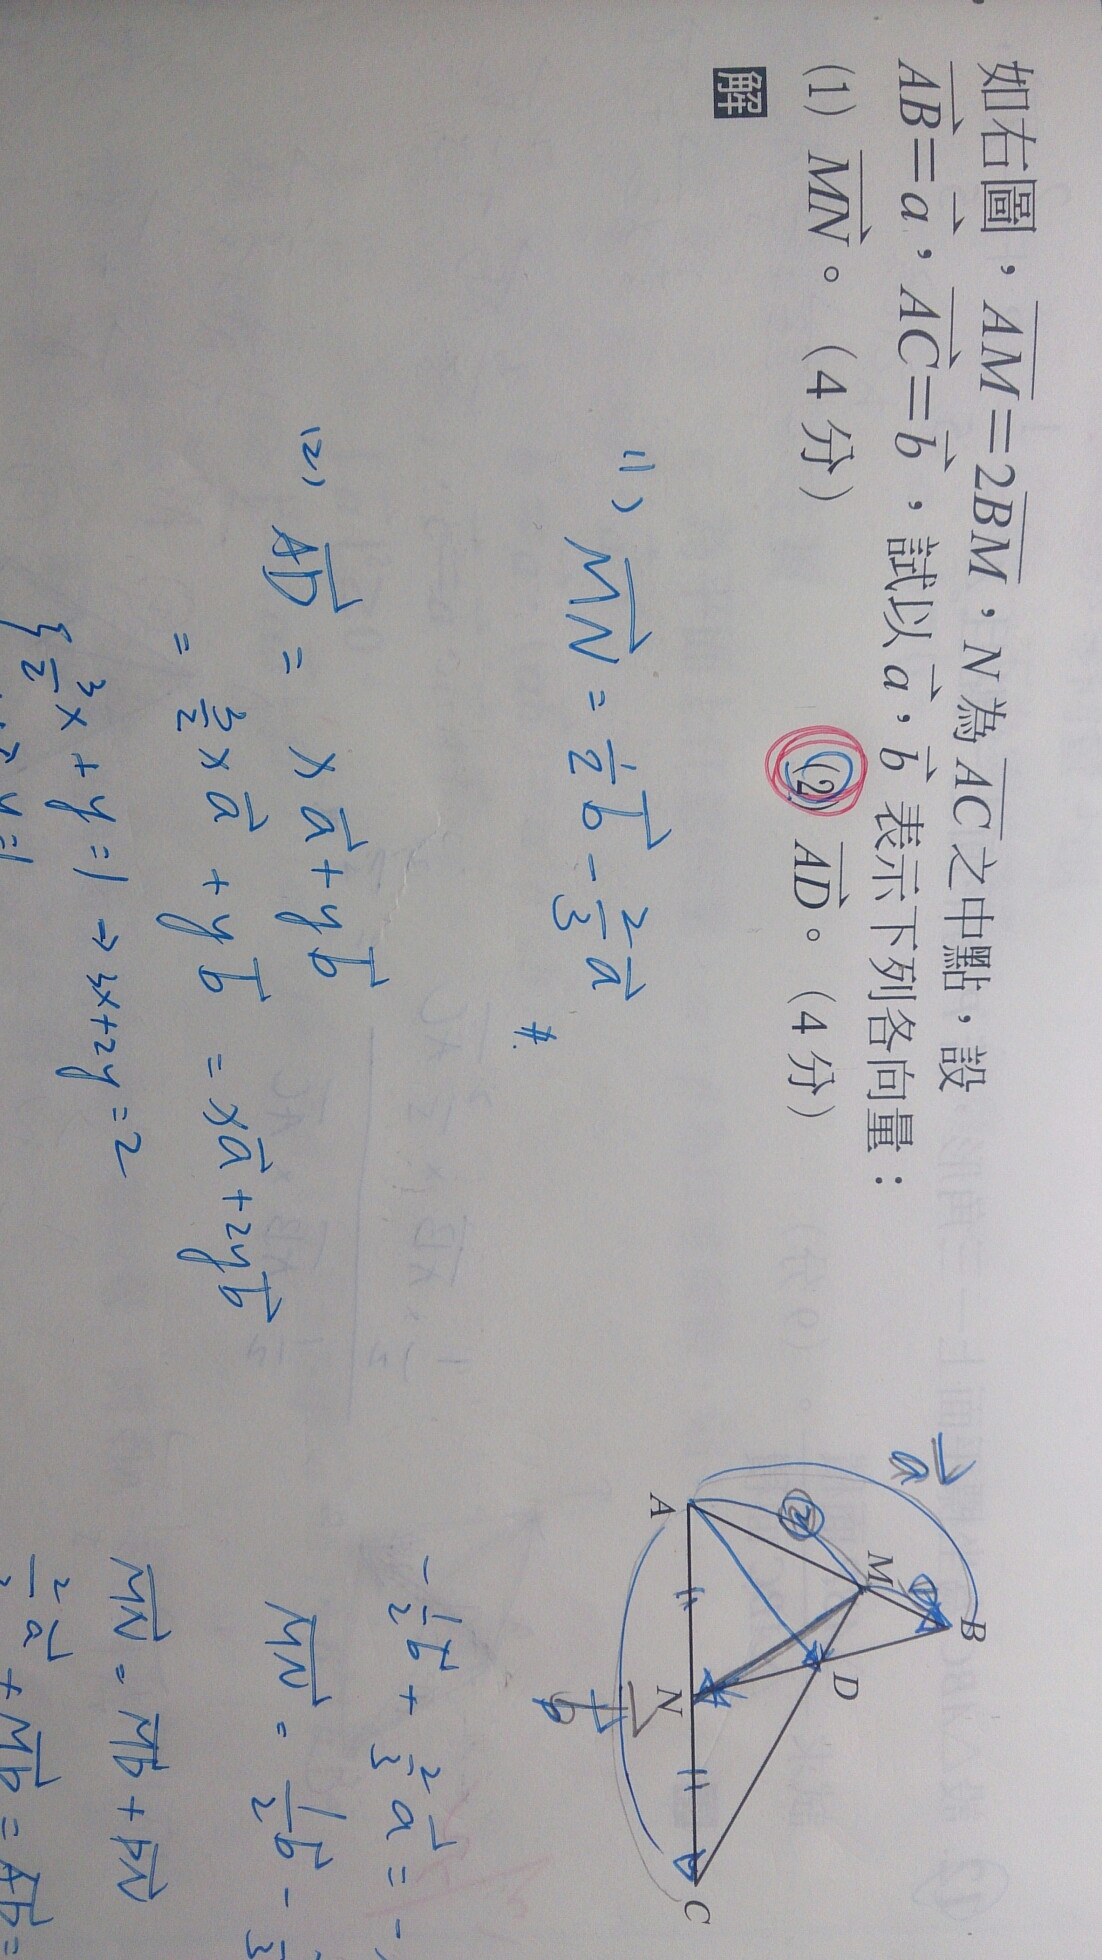 如右圖，AM=2BM，N為AC之中點，設
AB=a，AC=b，試以a，b表示下列各向量：
(1) MN。（4分）　(2) AD。（4分）
解
(1) MN = 1/2 b - 2/3 a
#
(2) AD = xa + yb
= 3/2 xa + yb = xa + 2yb
{ 3/2 x + y = 1 → 3x + 2y = 2
a
2
1
A
M
B
D
N
C
b
-1/2 b + 2/3 a = -
MN = 1/2 b -
MN = Mb + bN